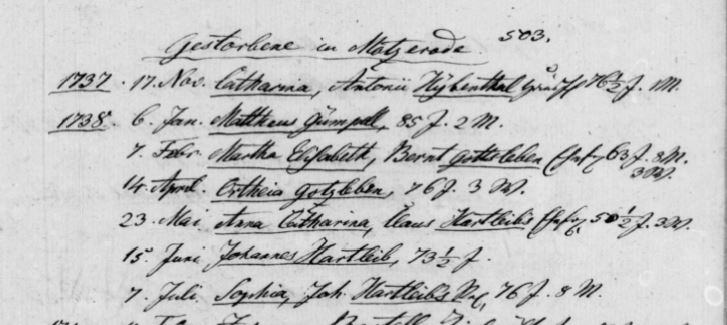 503.
Gestorbene in Motzerode.
1737. 17. Nov. Catharina, Antonii Hÿbenthal 76 1/2 J. 1 M.
1738. 6. Jan. Mattheus Gümpell, 85 J. 2 M.
7. Febr. Martha Elisabeth, Bernt Gottsleben Ehefr. 63 J. 8 M.
3 W.
14. April. Ortheia Gotzleben, 76 J. 3 W.
23. Mai Anna Catharina, Claus Hartleib's Ehefr. 50 1/2 J. 3 W.
15. Juni Johannes Hartleib, 73 1/2 J.
7. Juli Sophia, Joh. Hartleib's 76 J. 8 M.